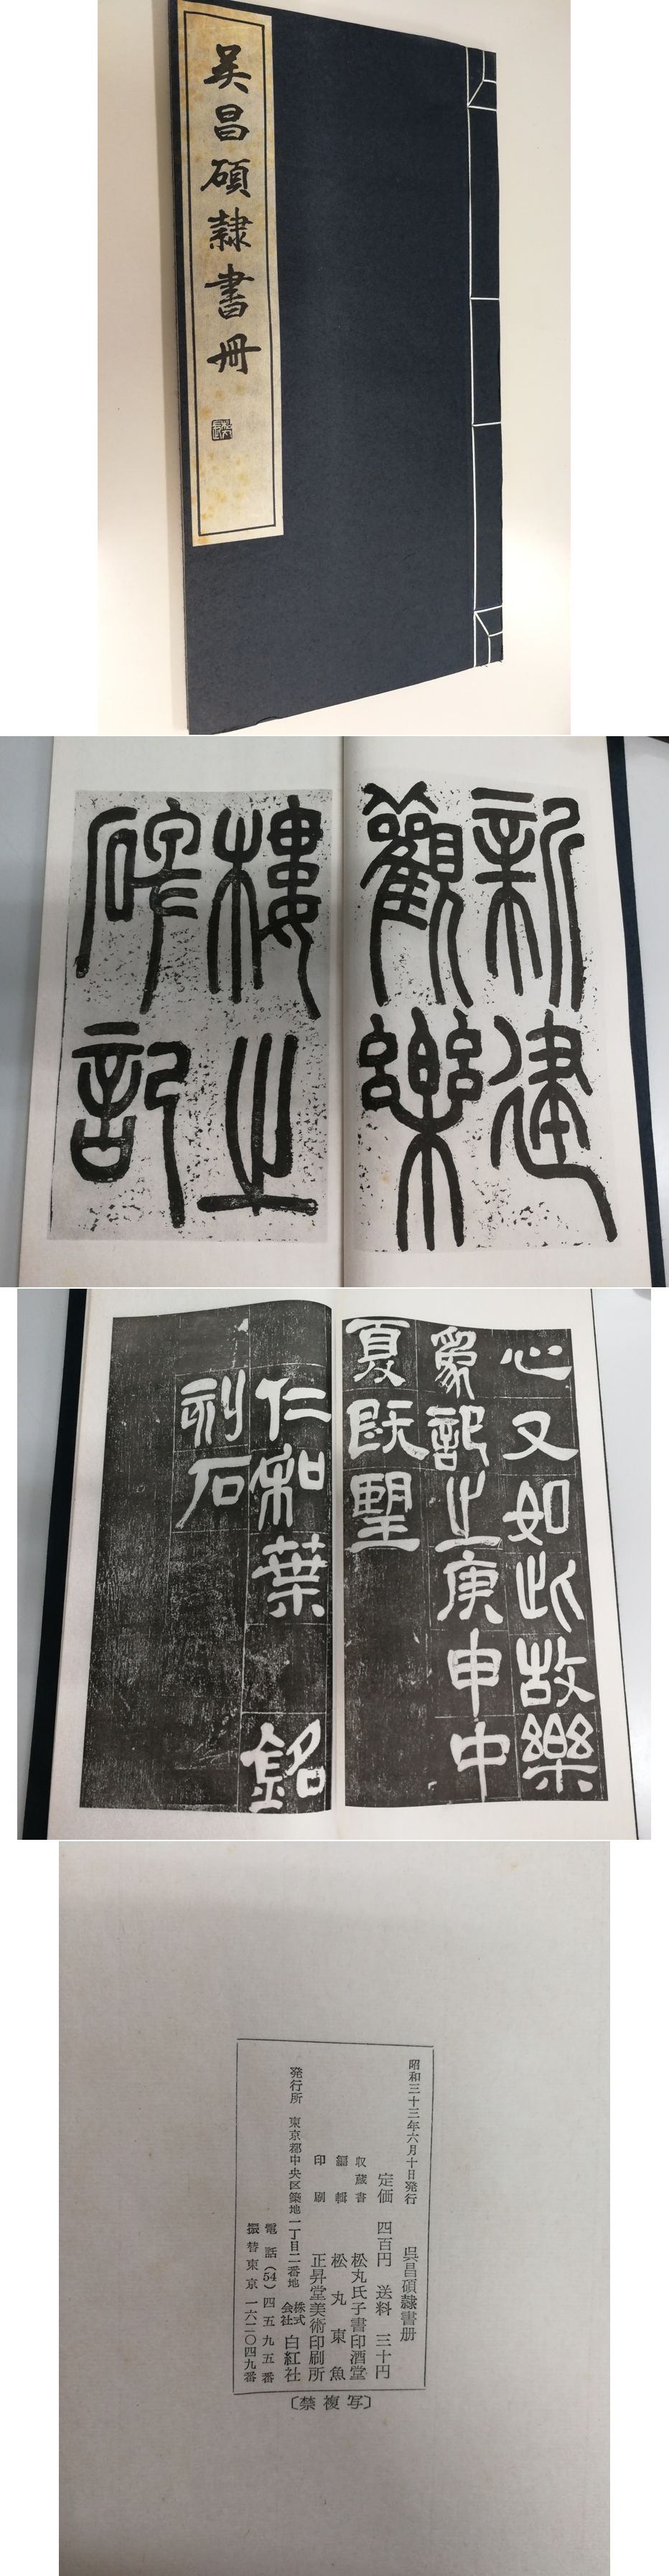 吳昌碩隷書冊
新建
觀樂
樓之
碑記
心又如此故樂
爲記之庚申中
夏既望
仁和葉 銘
刻石
昭和三十三年六月十日発行 呉昌碩隷書册
定価 四百円 送料 三十円
収蔵書 松丸氏子書印酒堂
編輯 松丸東魚
印刷 正昇堂美術印刷所
発行所 東京都中央区築地一丁目二番地 株式会社 白紅社
電話(54)四五九五番
振替東京 一六二〇四九番
〔禁複写〕